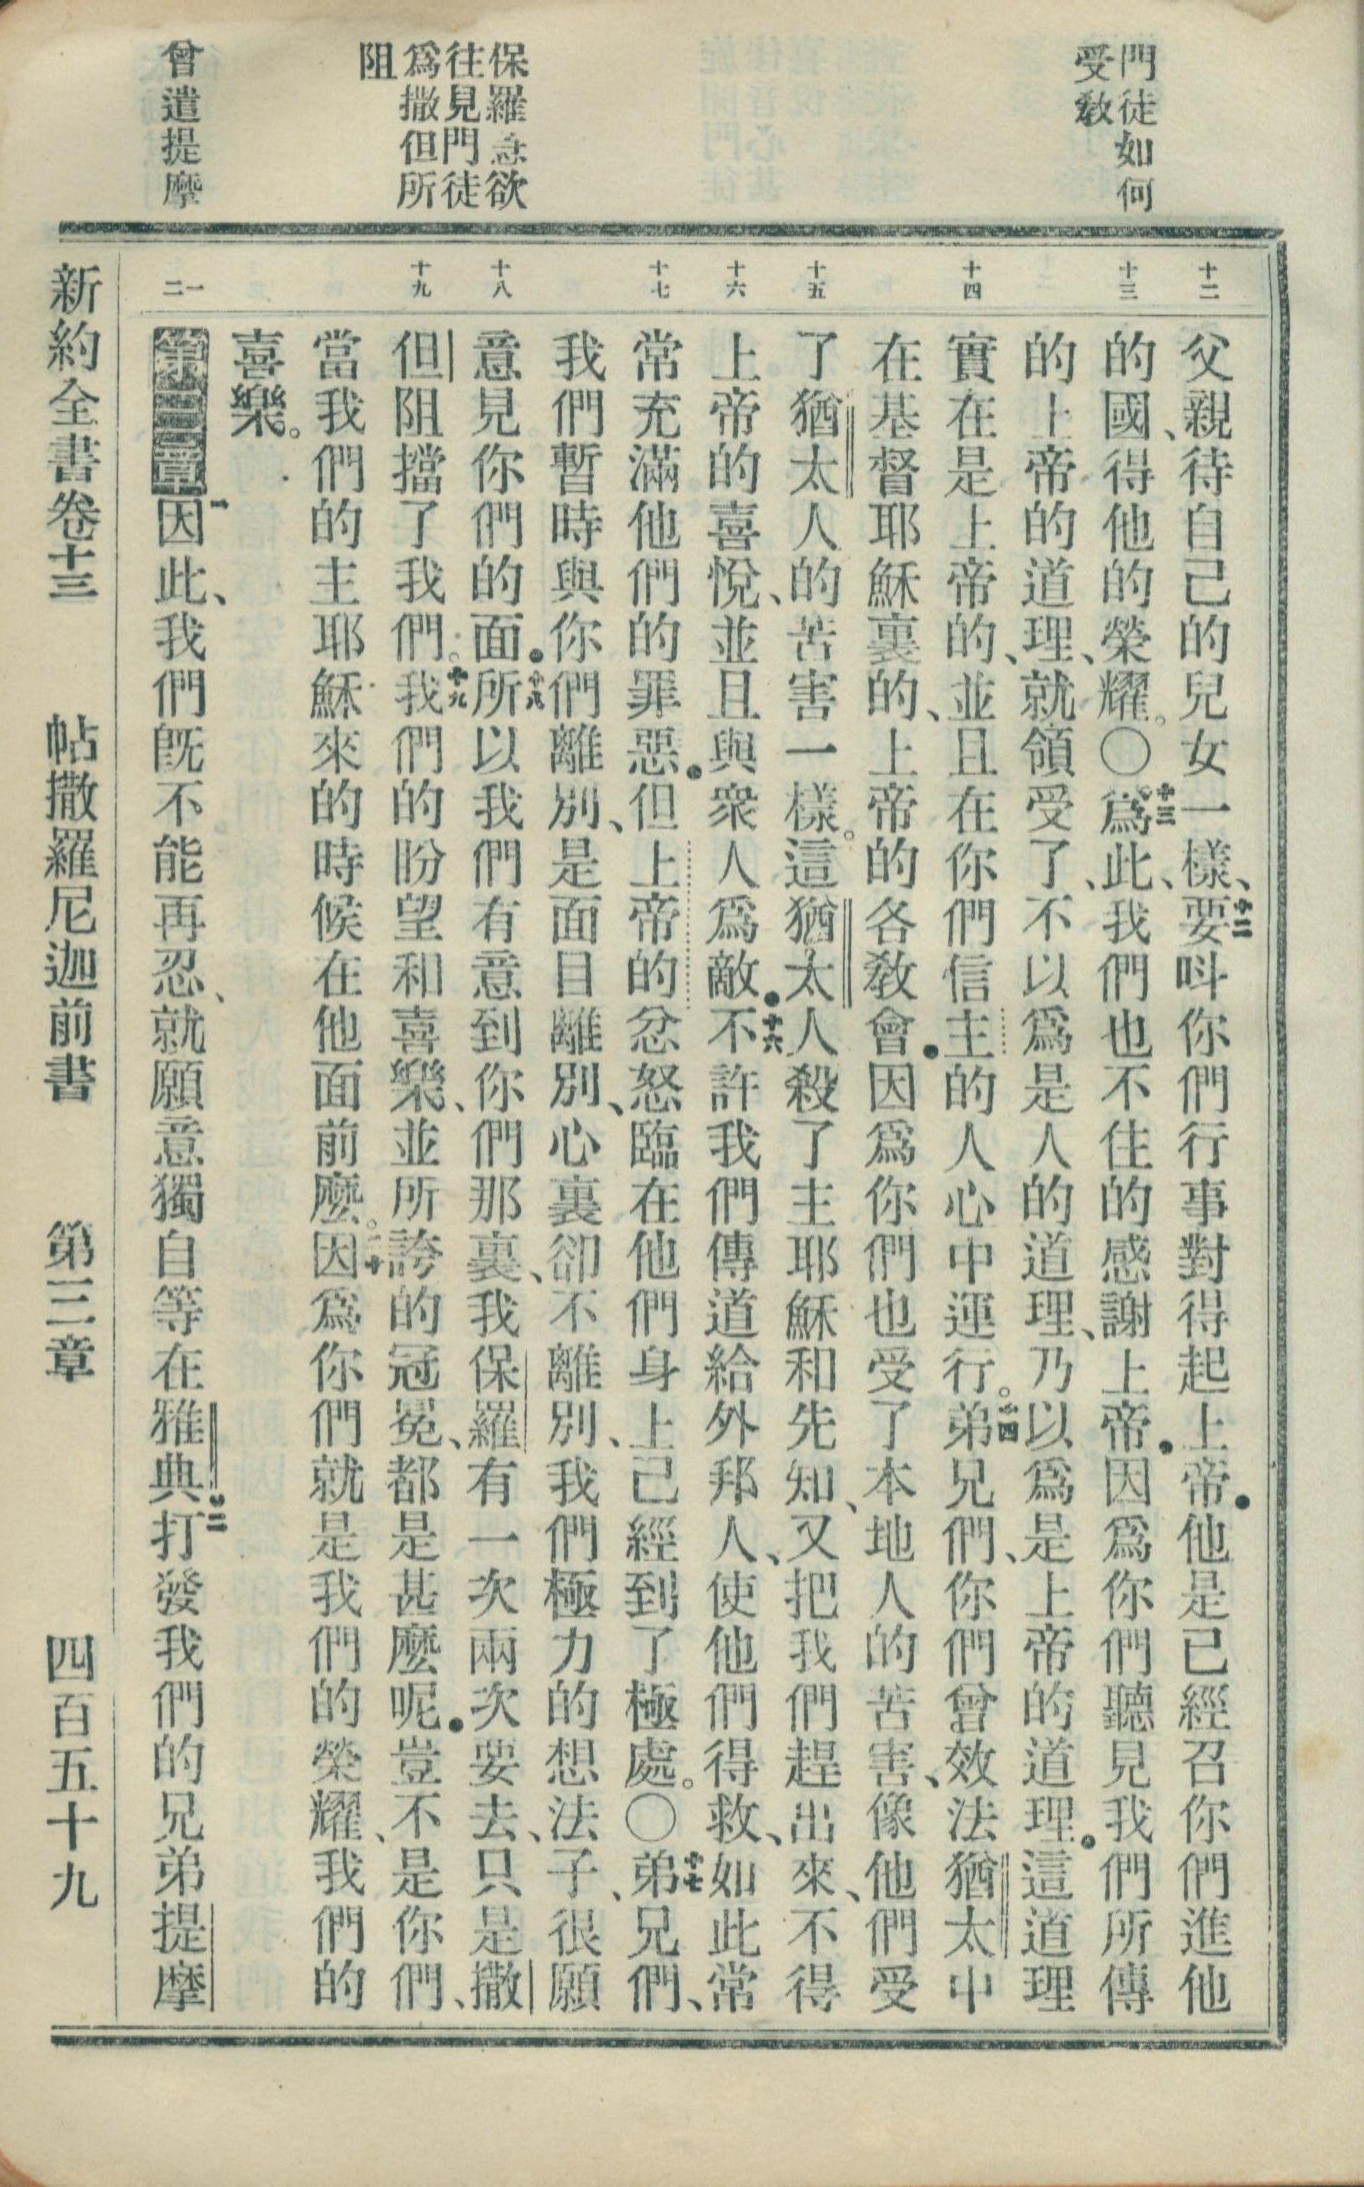 門徒如何
受教
保羅急欲
往見門徒
爲撒但所
阻
曾遣提摩
十二
十三
十四
十五
十六
十七
十八
十九
一
二
父親待自己的兒女一樣、十二要呌你們行事對得起上帝．他是已經召你們進他
的國、得他的榮耀。〇十三爲此、我們也不住的感謝上帝．因爲你們聽見我們所傳
的上帝的道理、就領受了、不以爲是人的道理、乃以爲是上帝的道理．這道理
實在是上帝的、並且在你們信主的人心中運行。十四弟兄們、你們曾效法猶太中
在基督耶穌裏的、上帝的各教會．因爲你們也受了本地人的苦害、像他們受
了猶太人的苦害一樣。這猶太人殺了主耶穌和先知、又把我們趕出來、不得
上帝的喜悅、並且與衆人爲敵．十六不許我們傳道給外邦人、使他們得救、如此常
常充滿他們的罪惡．但上帝的忿怒臨在他們身上已經到了極處。〇十七弟兄們、
我們暫時與你們離別、是面目離別、心裏卻不離別、我們極力的想法子、很願
意見你們的面．十八所以我們有意到你們那裏、我保羅有一次兩次要去、只是撒
但阻擋了我們。十九我們的盼望和喜樂、並所誇的冠冕、都是甚麼呢．豈不是你們、
當我們的主耶穌來的時候在他面前麼。二十因爲你們就是我們的榮耀、我們的
喜樂。
第三章一因此、我們旣不能再忍、就願意獨自等在雅典．二打發我們的兄弟提摩
新約全書卷十三　帖撒羅尼迦前書　第三章　四百五十九